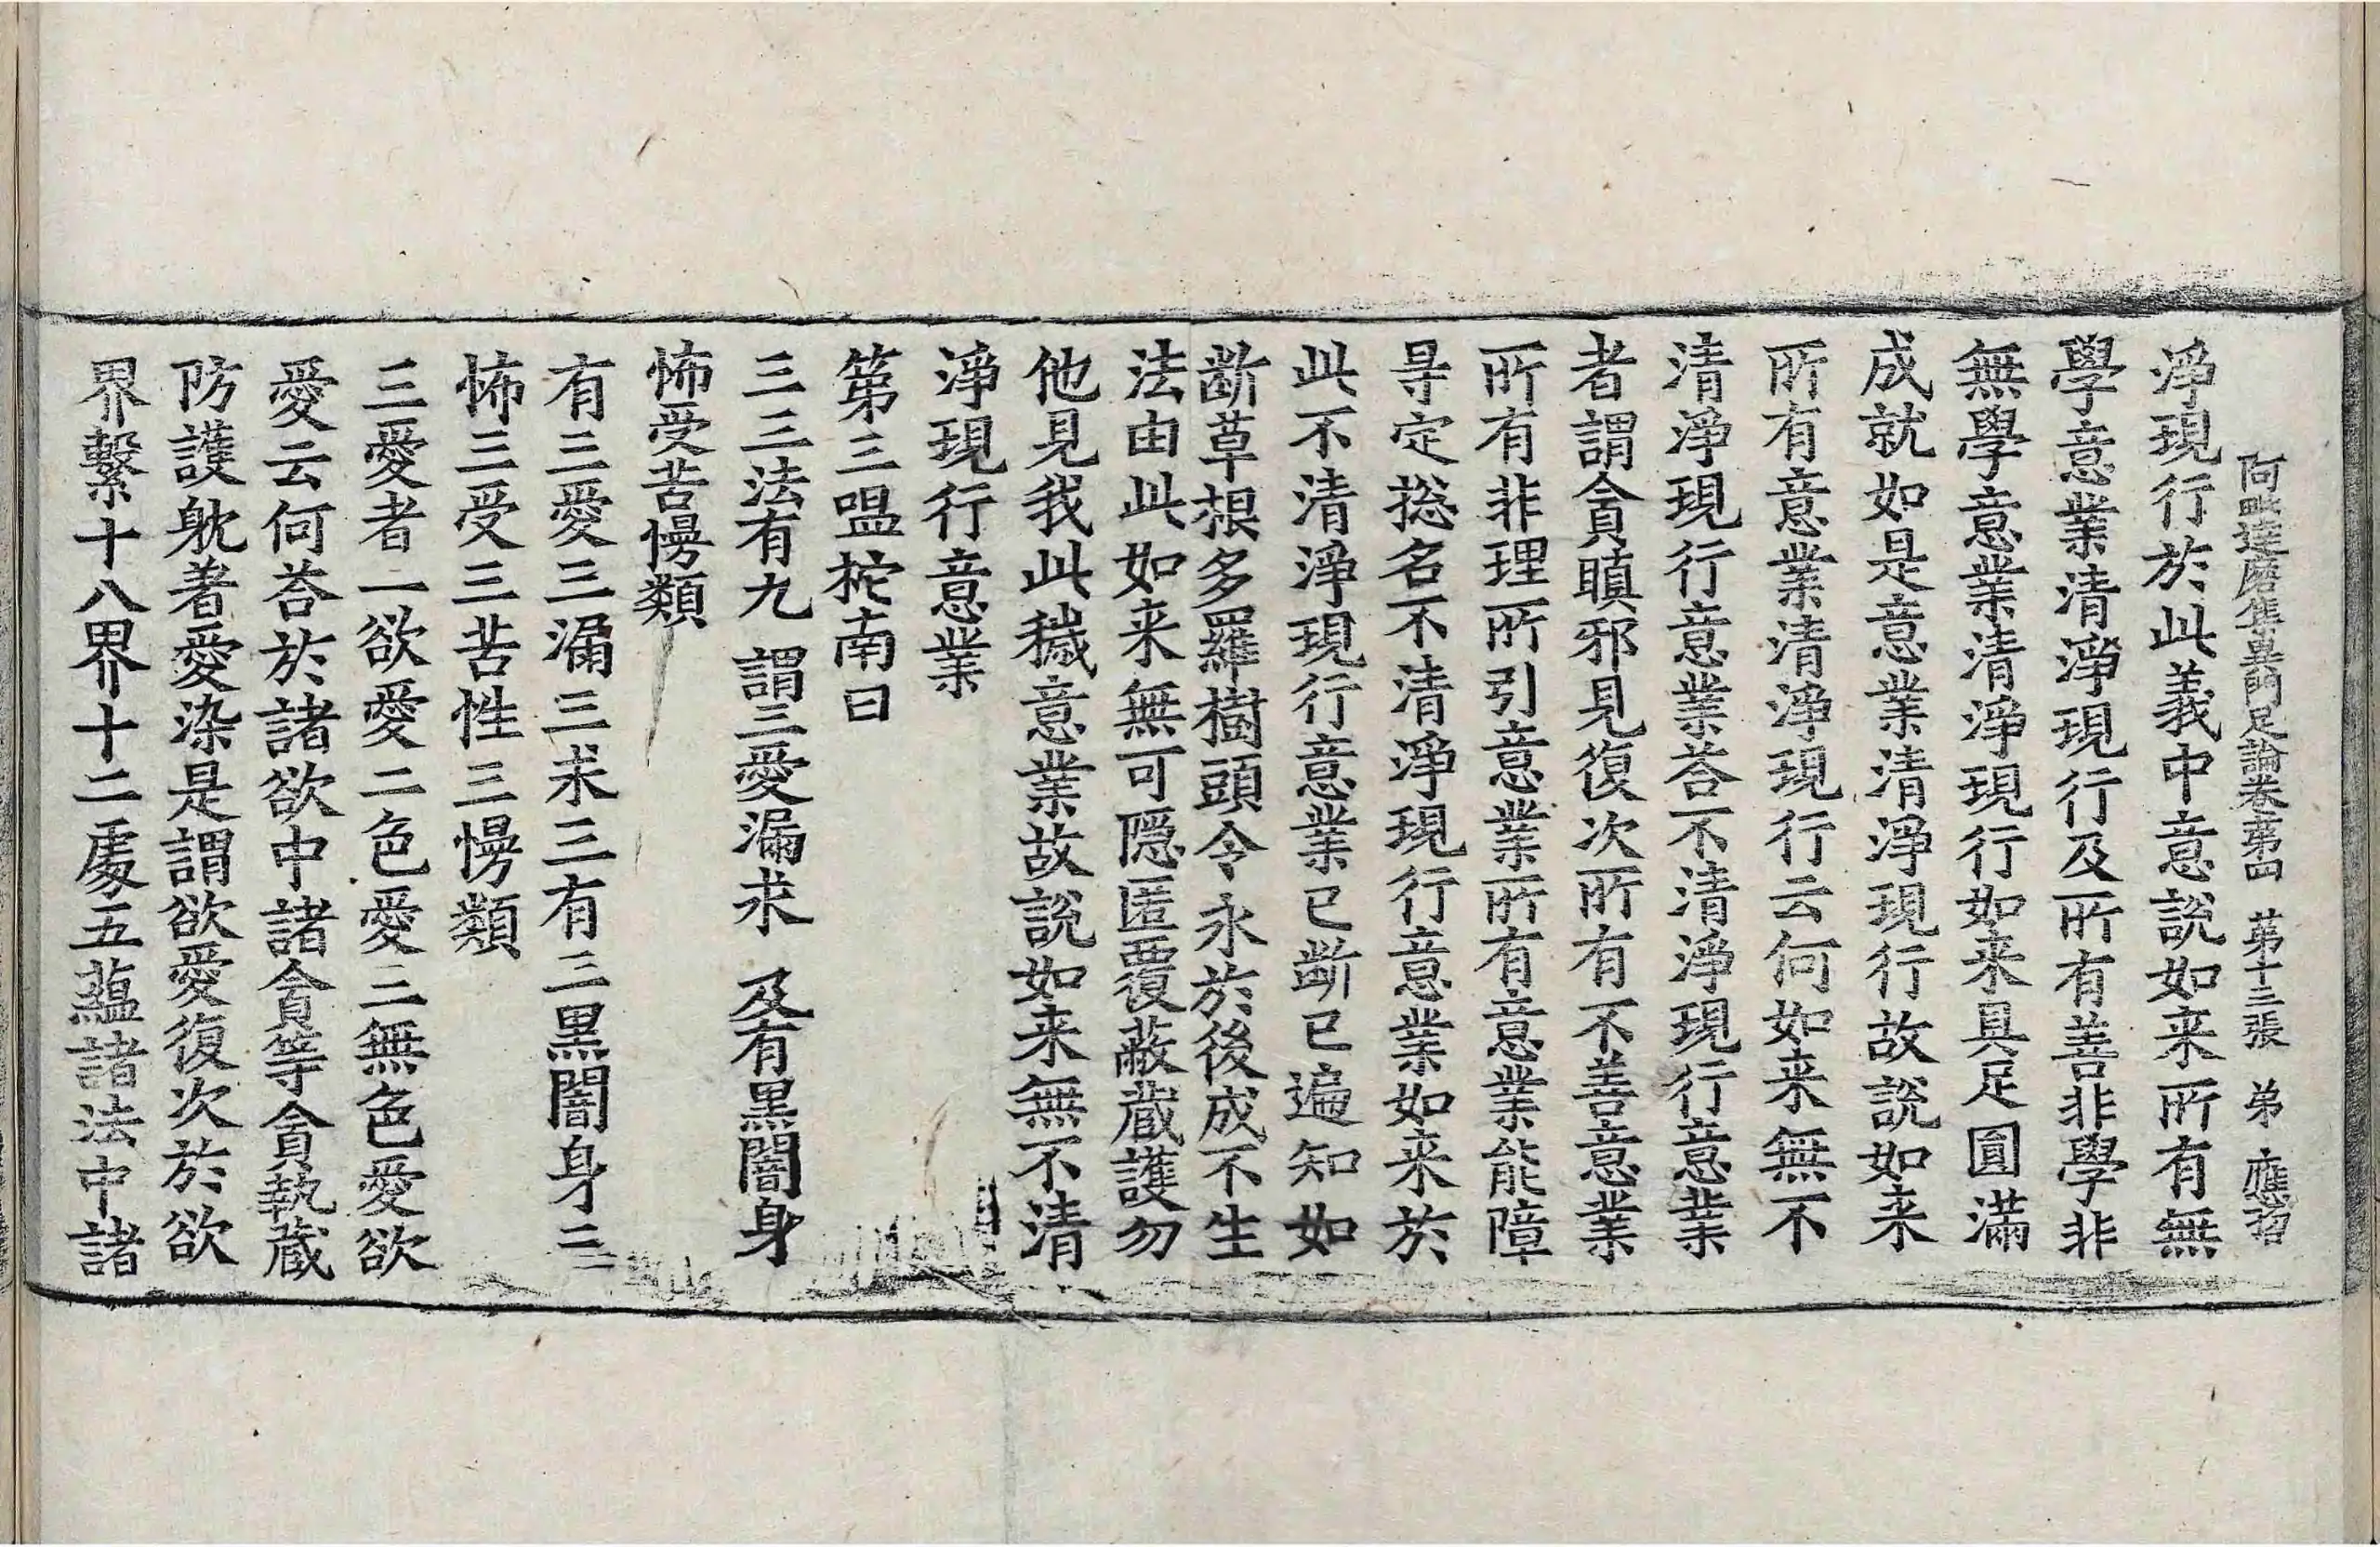 阿毗達磨集異門足論卷第四 第十三張 弟 應招
淨現行於此義中意說如来所有無
學意業清淨現行及所有善非學非
無學意業清淨現行如来具足圓滿
成就如是意業清淨現行故說如来
所有意業清淨現行云何如来無不
清淨現行意業荅不清淨現行意業
者謂貪瞋邪見復次所有不善意業
所有非理所引意業所有意業能障
㝵定捴名不清淨現行意業如来於
此不清淨現行意業已斷已遍知如
斷草根多羅樹頭令永於後成不生
法由此如来無可隱匿覆蔽藏護勿
他見我此穢意業故說如来無不清
淨現行意業
第三嗢柁南曰
三三法有九 謂三愛漏求 及有黑闇身
怖受苦慢類
有三愛三漏三求三有三黑闇身三
怖三受三苦性三慢類
三愛者一欲愛二色愛三無色愛欲
愛云何荅於諸欲中諸貪等貪執藏
防護躭著愛染是謂欲愛復次於欲
界繫十八界十二處五蘊諸法中諸